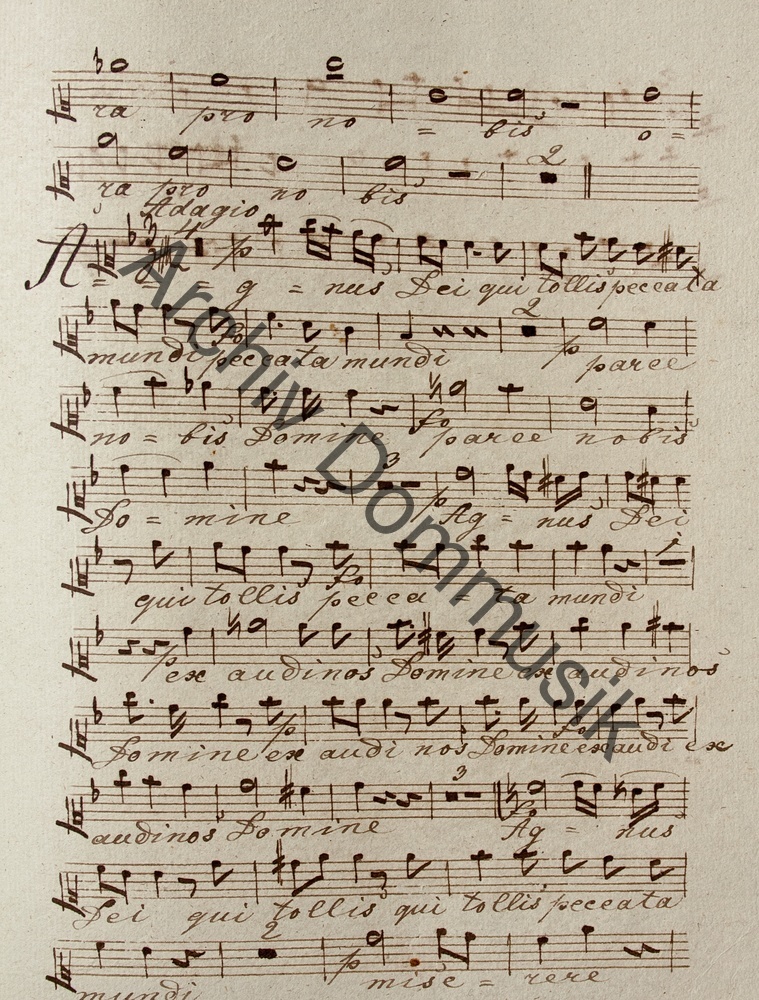 ra pro no = bis o =
ra pro no bis 2
Adagio
A = = = g = nus Dei qui tollis peccata
mundi peccata mundi 2 p parce
no = bis Domine fo parce nobis
Do = mine 3 p Ag = nus Dei
qui tollis fo pecca = ta mundi
p ex audi nos Domine ex audi nos
Domine ex p audi nos Domine fo ex audi ex
audi nos Domine 3 fo Ag = nus
Dei qui tollis qui tollis peccata
mundi 2 p mise = rere
Archiv Dommusik